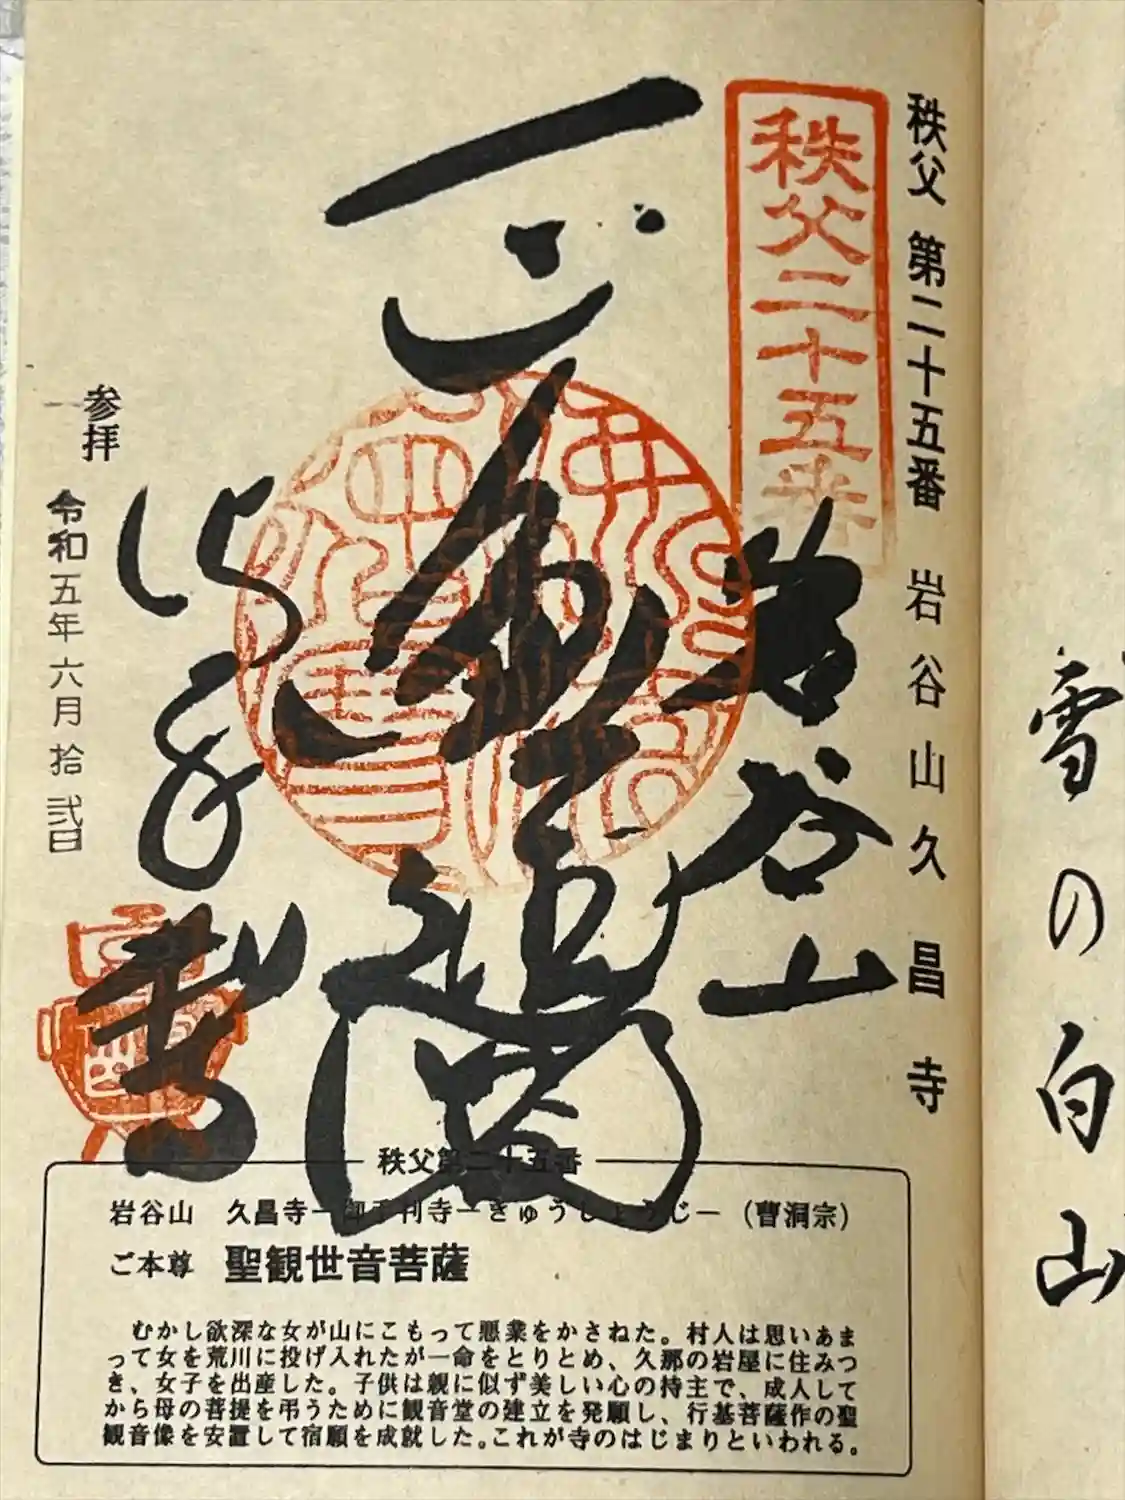 秩父 第二十五番 岩谷山久昌寺
秩父二十五番
岩谷山
参拝
令和五年六月拾弐日
秩父第二十五番
岩谷山 久昌寺−御手判寺−きゅうしょうじ−(曹洞宗)
ご本尊 聖観世音菩薩
むかし欲深な女が山にこもって悪業をかさねた。村人は思いあま
って女を荒川に投げ入れたが一命をとりとめ、久那の岩屋に住みつ
き、女子を出産した。子供は親に似ず美しい心の持主で、成人して
から母の菩提を弔うために観音堂の建立を発願し、行基菩薩作の聖
観音像を安置して宿願を成就した。これが寺のはじまりといわれる。
雪の白山